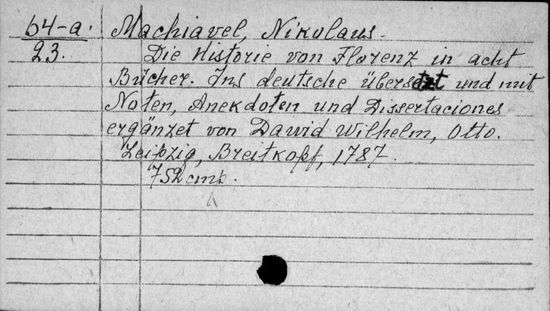 64-a.
23.
Machiavel, Nikolaus.
Die Historie von Florenz in acht
Bücher. Ins deutsche übersetzt und mit
Noten, Anekdoten und Dissertaciones
ergänzet von David Wilhelm, Otto.
Leipzig, Breitkopf, 1787.
752 стр.